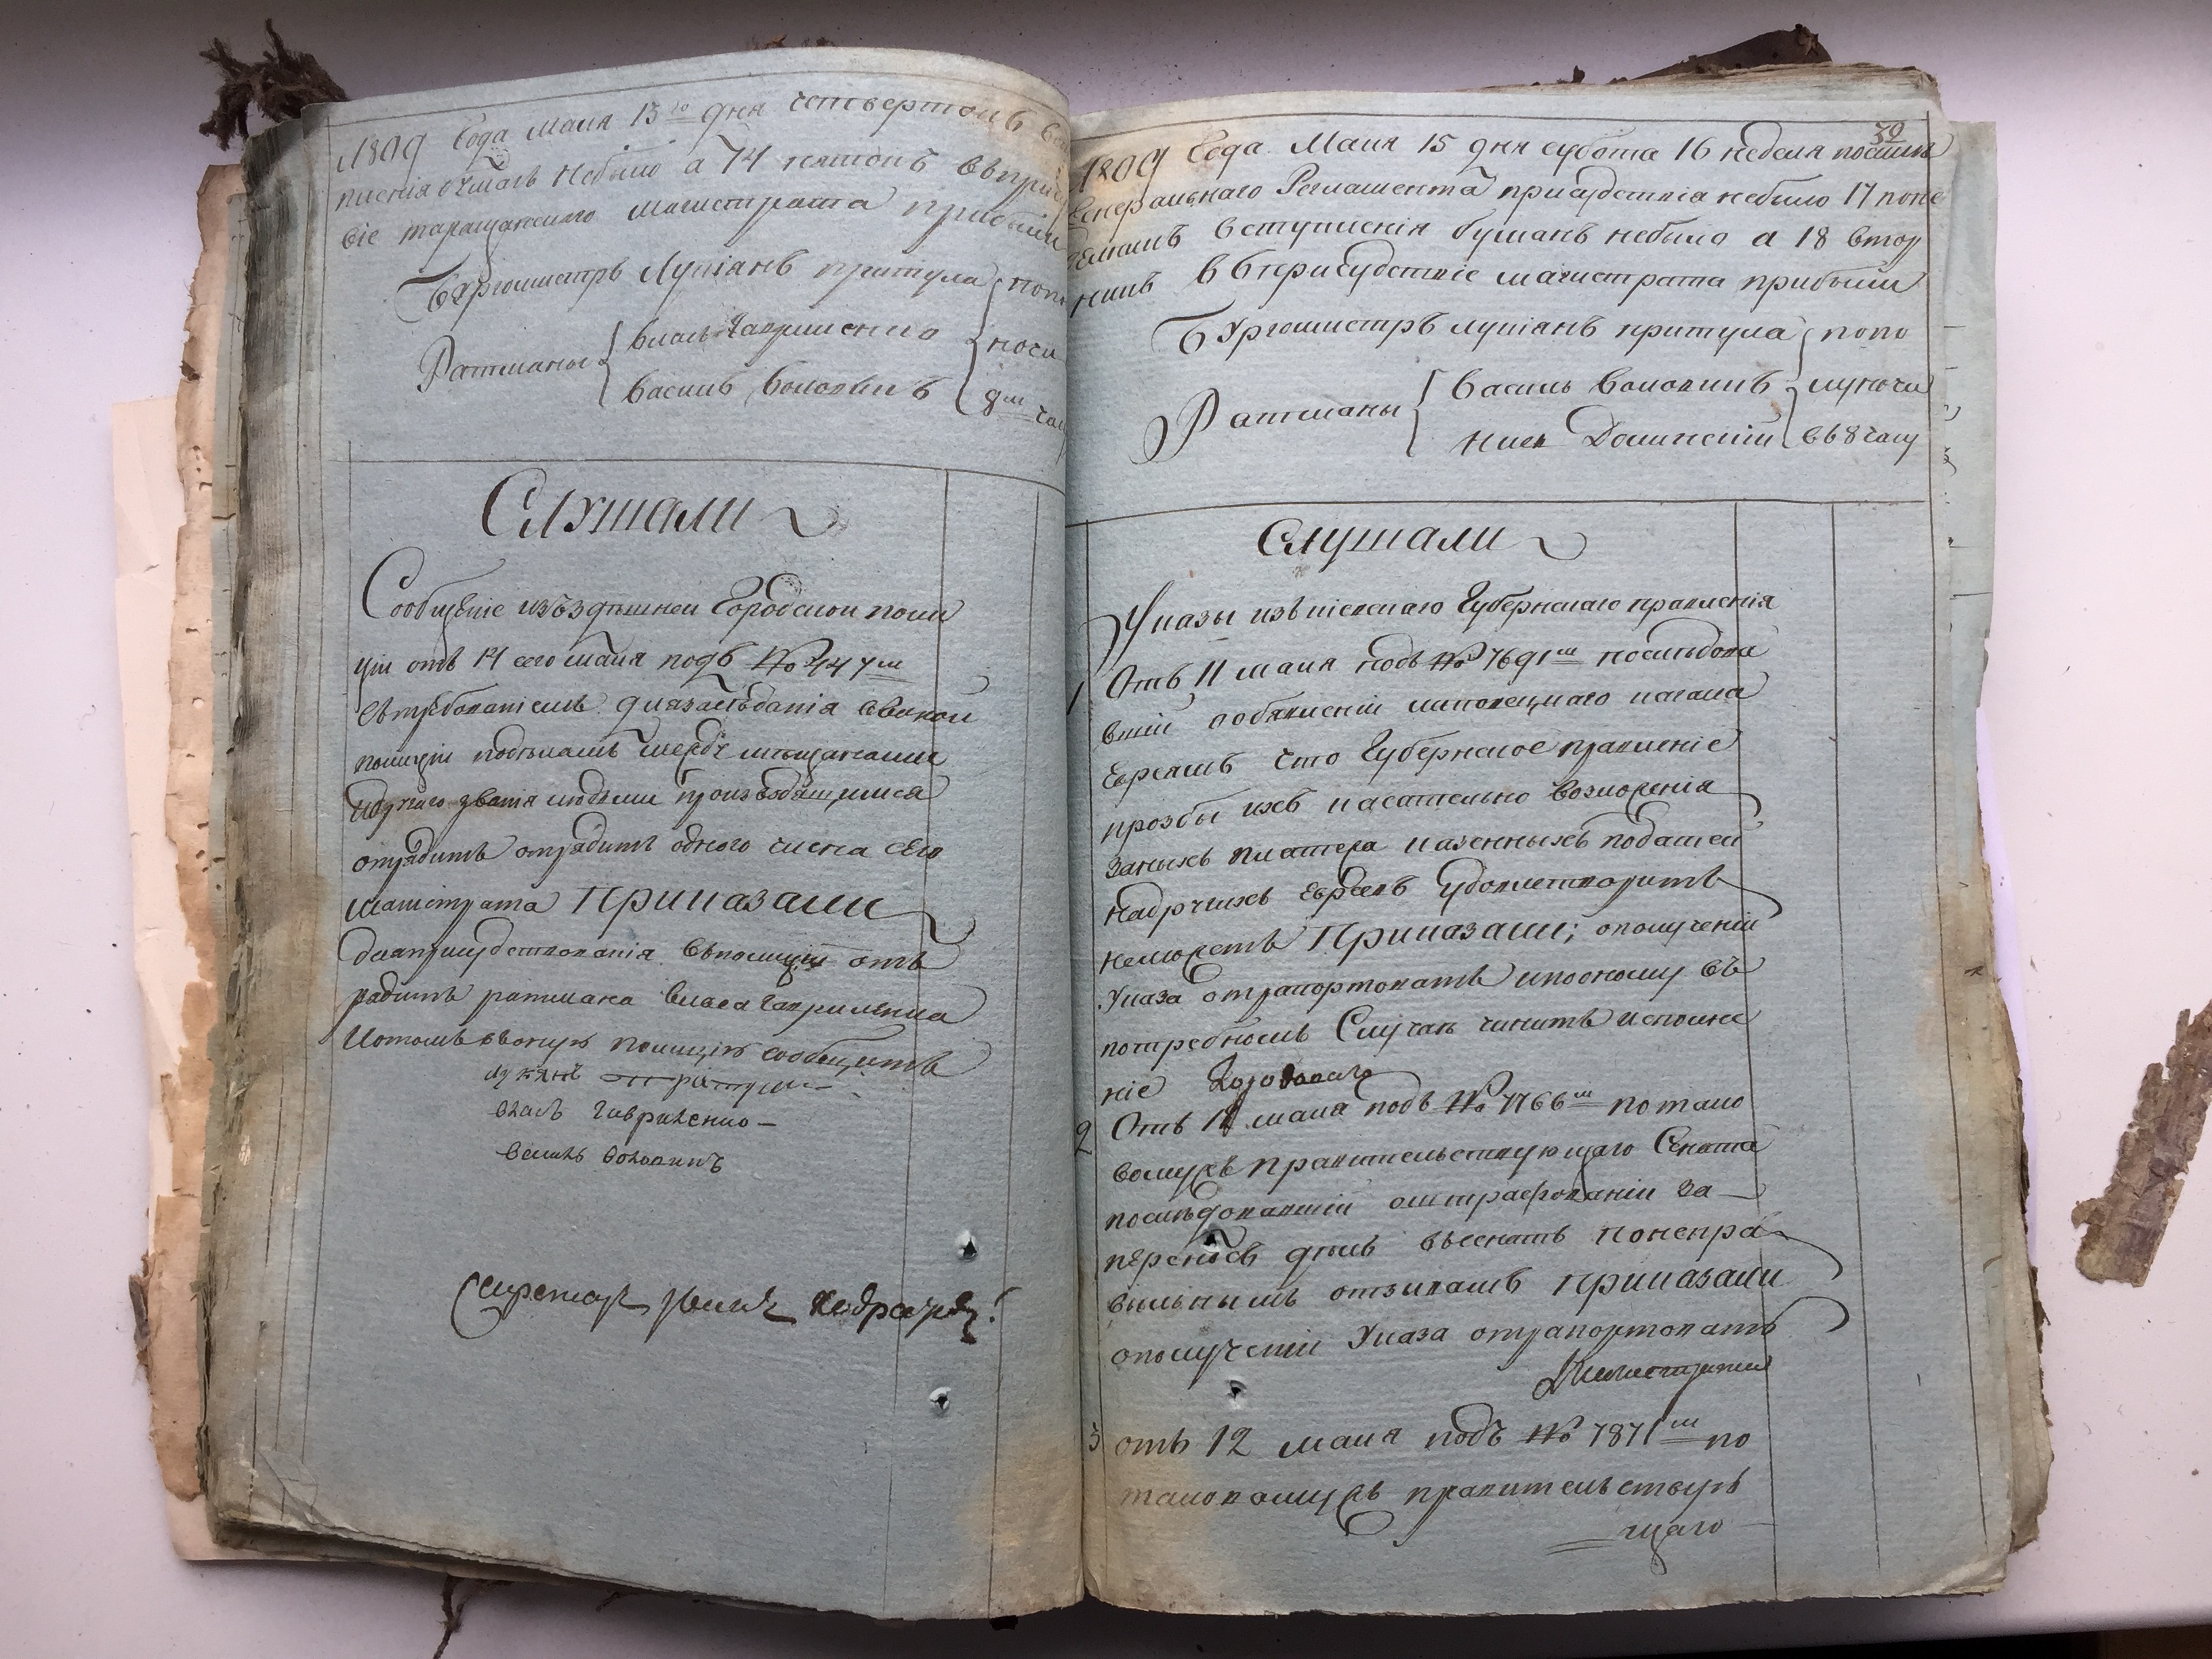 1809 Года маия 13го дня четвертокъ
пления бумагъ небыло а 14 пятокъ въприс
вие таращанского магистрата прибыли
Бургомистръ Лукіанъ притула
попо
Ратманы
власъ Гавриленко
василь Воловикъ
ночи
Слушали
Сообщение изъздешней Городской поли
ціи отъ 14 сего маия подъ № 447м
стребованіемъ длязаседаніяввоной
полиціи поделамъ между мещанами
идругаго звания людьми производящимся
отрядить отрядить одного члена сего
магистрата Приказали
дляприсудствованія вполиціи отъ
радить ратмана власа гавриленка
Иотомъ ввоную полицію сообщить
лукянъ притула
власъ гавриленко
василь воловикъ
Секретарь
39
1809 Года Маия 15 дня субота 16 неделя посиле
Генеральнаго Регламента присудствия небыло 17 поне
делокъ вступления бумагъ небыло а 18 втор
никъ въ присудствіе магистрата прибыли
Бургомистръ лукіанъ притула
попо
Ратманы
василь Воловикъ
илія Долинскій
луночи
въ 8 часу
Слушали
Указы изъ кіевскаго Губернскаго правленія
1 Отъ 11 маия подъ № 7691м последова
вшій ообявленіи липовецкаго кагала
Евреямъ что Губернское правленіе
прозбы ихъ касательно возложенія
заныхъ платежа казенныхъ податей
надругихъ Евреевъ удовлетворить
неможетъ Приказали; ополученіи
Указа отрапортовать ипооному въ
потребномъ Случаи чинить исполне
ніе
2 Отъ 12 маия подъ № 7766м потако
вомужъ правительствующаго Сената
последовавшей оштрафованіи за
переносъ делъ въсенатъ понепра
вильнымъ отзывамъ приказали
ополученіи Указа отрапортовать
3 отъ 12 маия подъ № 7871м по
таковомужъ правительствую
щаго